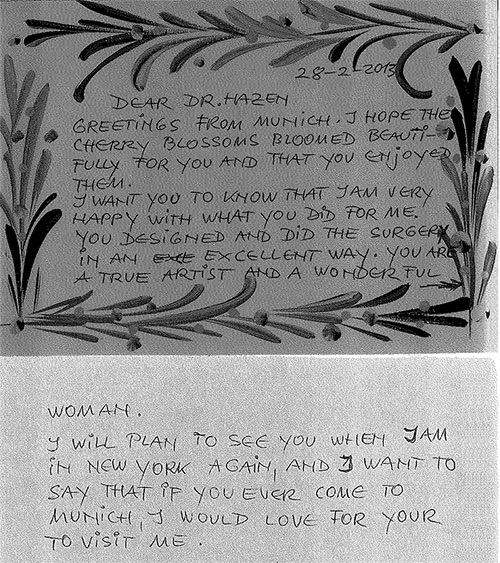 28-2-2013
DEAR DR. HAZEN
GREETINGS FROM MUNICH. I HOPE THE
CHERRY BLOSSOMS BLOOMED BEAUTI-
FULLY FOR YOU AND THAT YOU ENJOYED
THEM.
I WANT YOU TO KNOW THAT I AM VERY
HAPPY WITH WHAT YOU DID FOR ME.
YOU DESIGNED AND DID THE SURGERY
IN AN EXCELLENT WAY. YOU ARE
A TRUE ARTIST AND A WONDERFUL
WOMAN.
I WILL PLAN TO SEE YOU WHEN I AM
IN NEW YORK AGAIN, AND I WANT TO
SAY THAT IF YOU EVER COME TO
MUNICH, I WOULD LOVE FOR YOUR
TO VISIT ME.